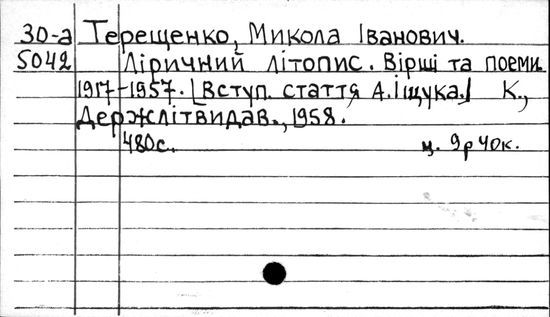 30-а Терещенко, Микола Іванович.
5042 Ліричний літопис. Вірші та поеми
1917-1957. [Вступ. стаття А.Іщука.] К.,
Держлітвидав., 1958.
480с. ц. 9р40к.